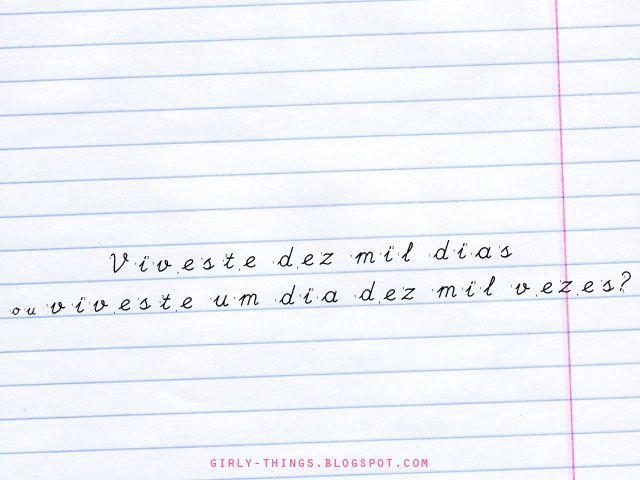 Viveste dez mil dias
ou viveste um dia dez mil vezes?
GIRLY-THINGS.BLOGSPOT.COM